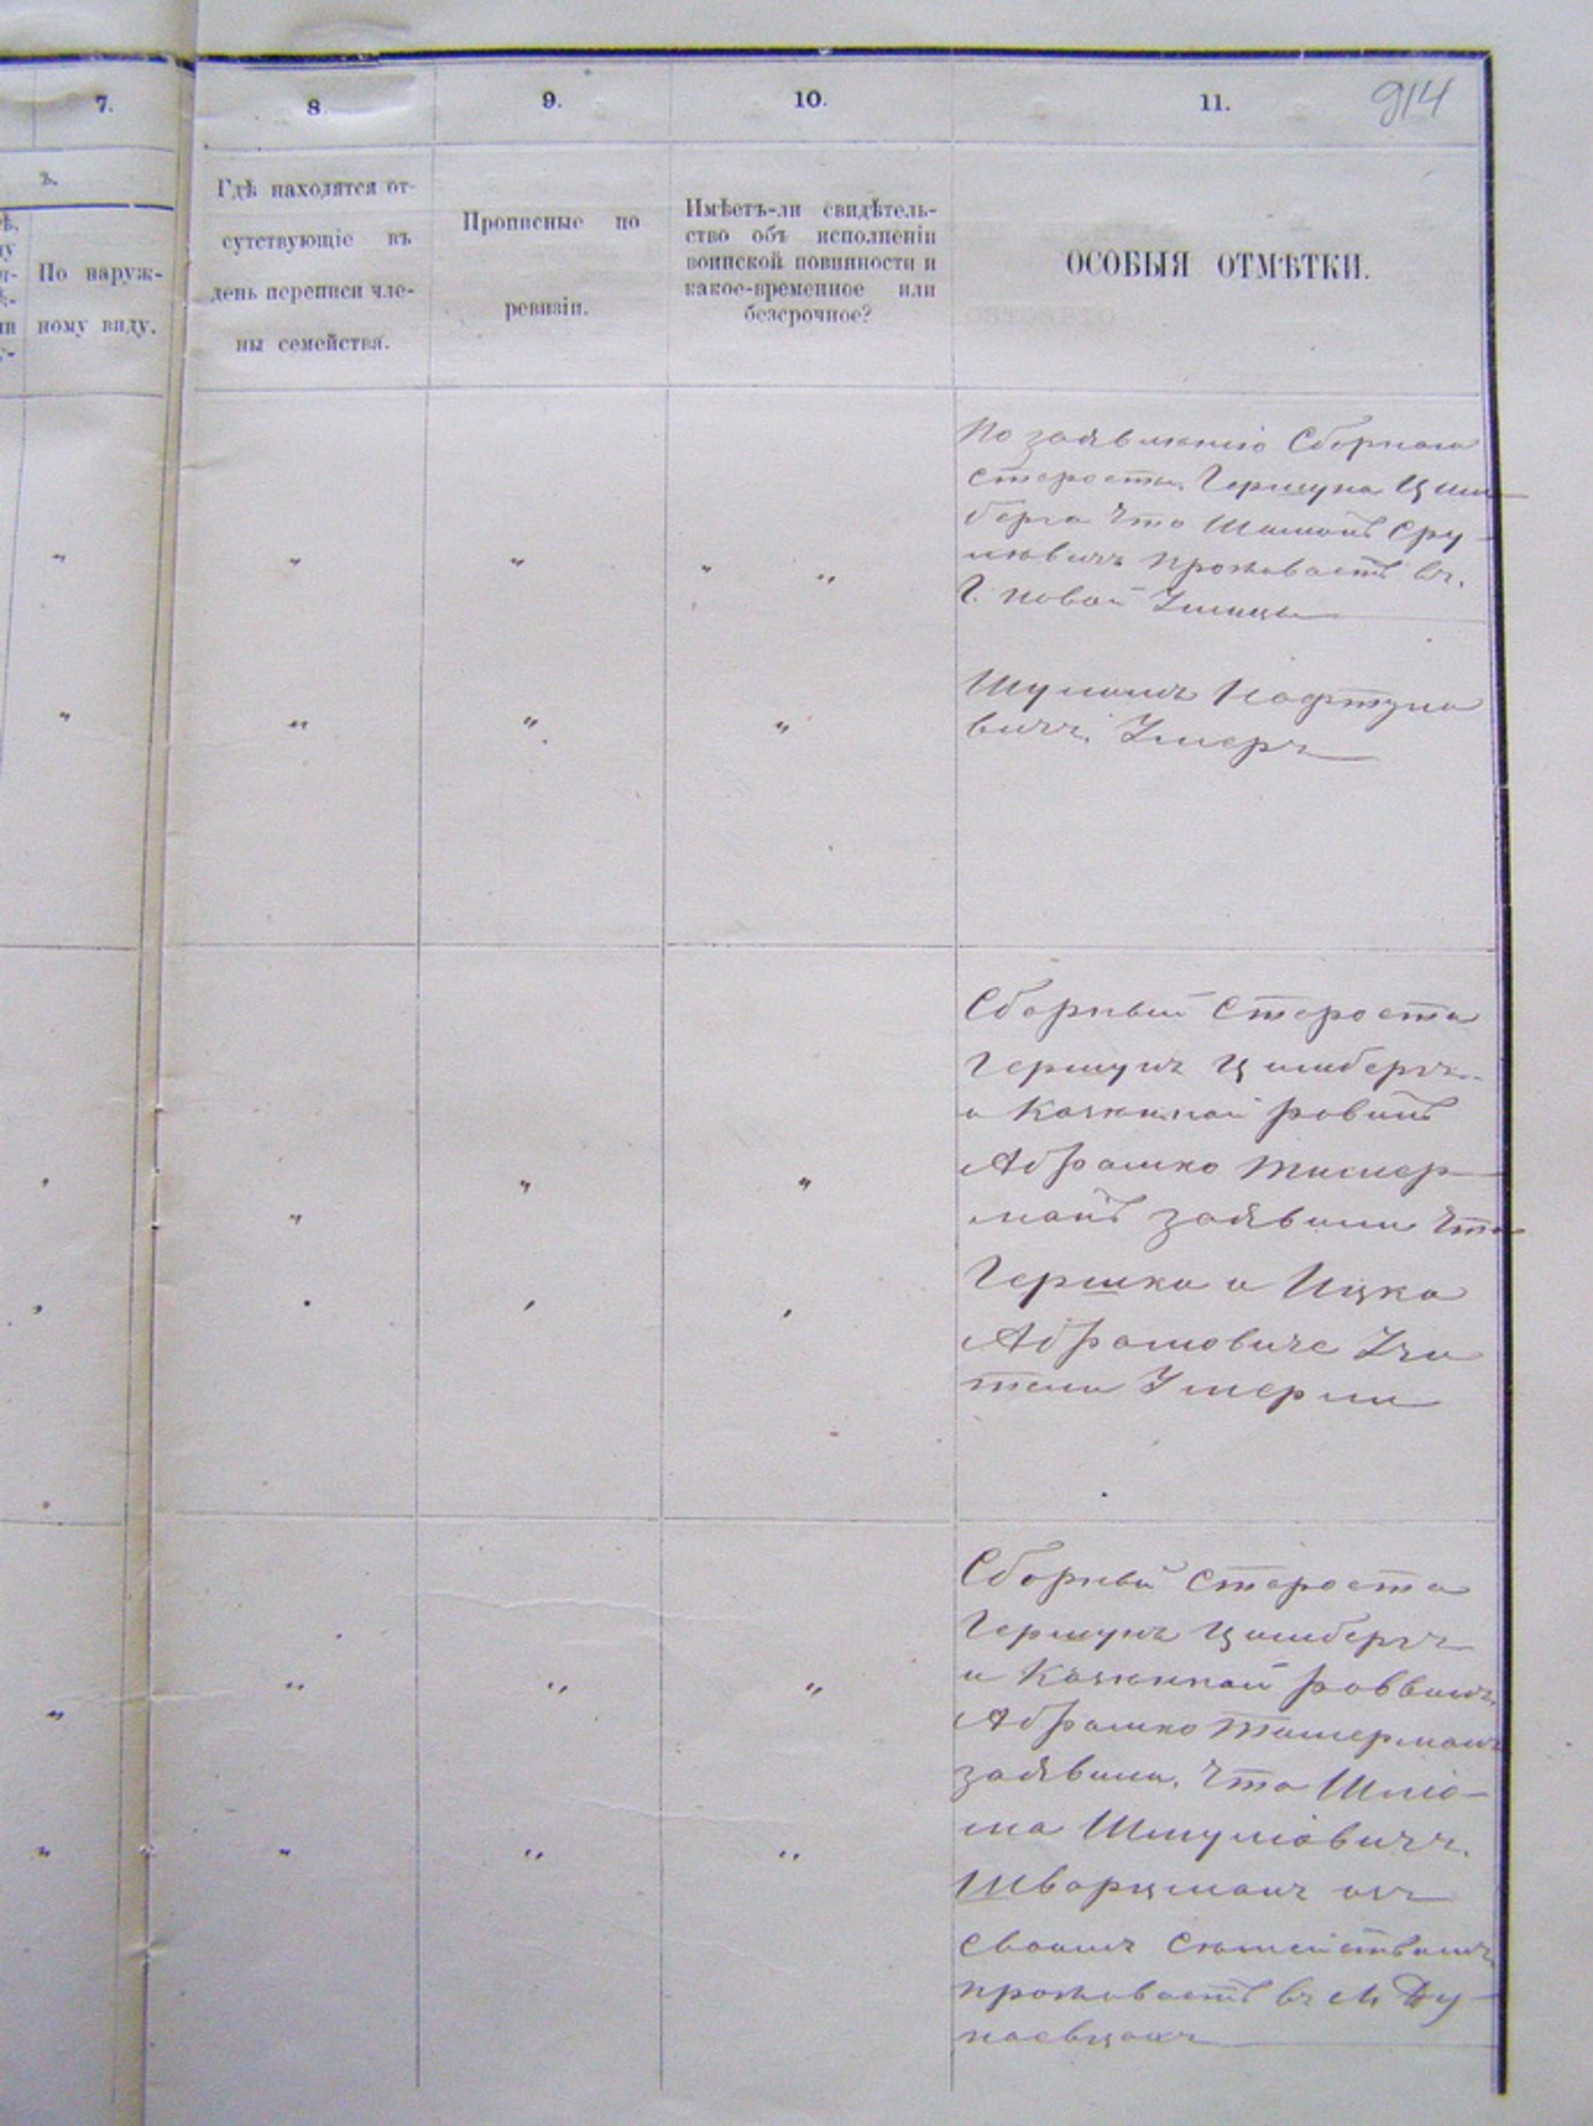 7.
8.
9.
10.
11.
914
ъ.
По наруж-
ному виду.
Гдѣ находятся от-
сутствующіе въ
день переписи чле-
ны семейства.
Прописные по
ревизіи.
Имѣетъ-ли свидѣтель-
ство объ исполненіи
воинской повинности и
какое-временное или
безсрочное?
ОСОБЫЯ ОТМѢТКИ.
По заявленію Сборнаго
старосты Гершуна Цим
берга что Шимонъ Сру-
левичъ проживаетъ въ
г. Новой Ушицы
Нафтуло
вичъ, Умеръ
Сборный староста
Гершунъ Цимберъ
и Казенной ровинъ
Абрамко Тимер
манъ заявили что
Гершко и Ицко
Абрамовиче Учи
тели Умерли
Сборный староста
Гершунъ Цимбергъ
и Казенной роввинъ
Абрамко Тимерманъ
заявили, что Шлiо-
ма Шмулiовичъ
Шварцманъ
своимъ семействомъ
проживаетъ въ м. Ду-
наевцахъ